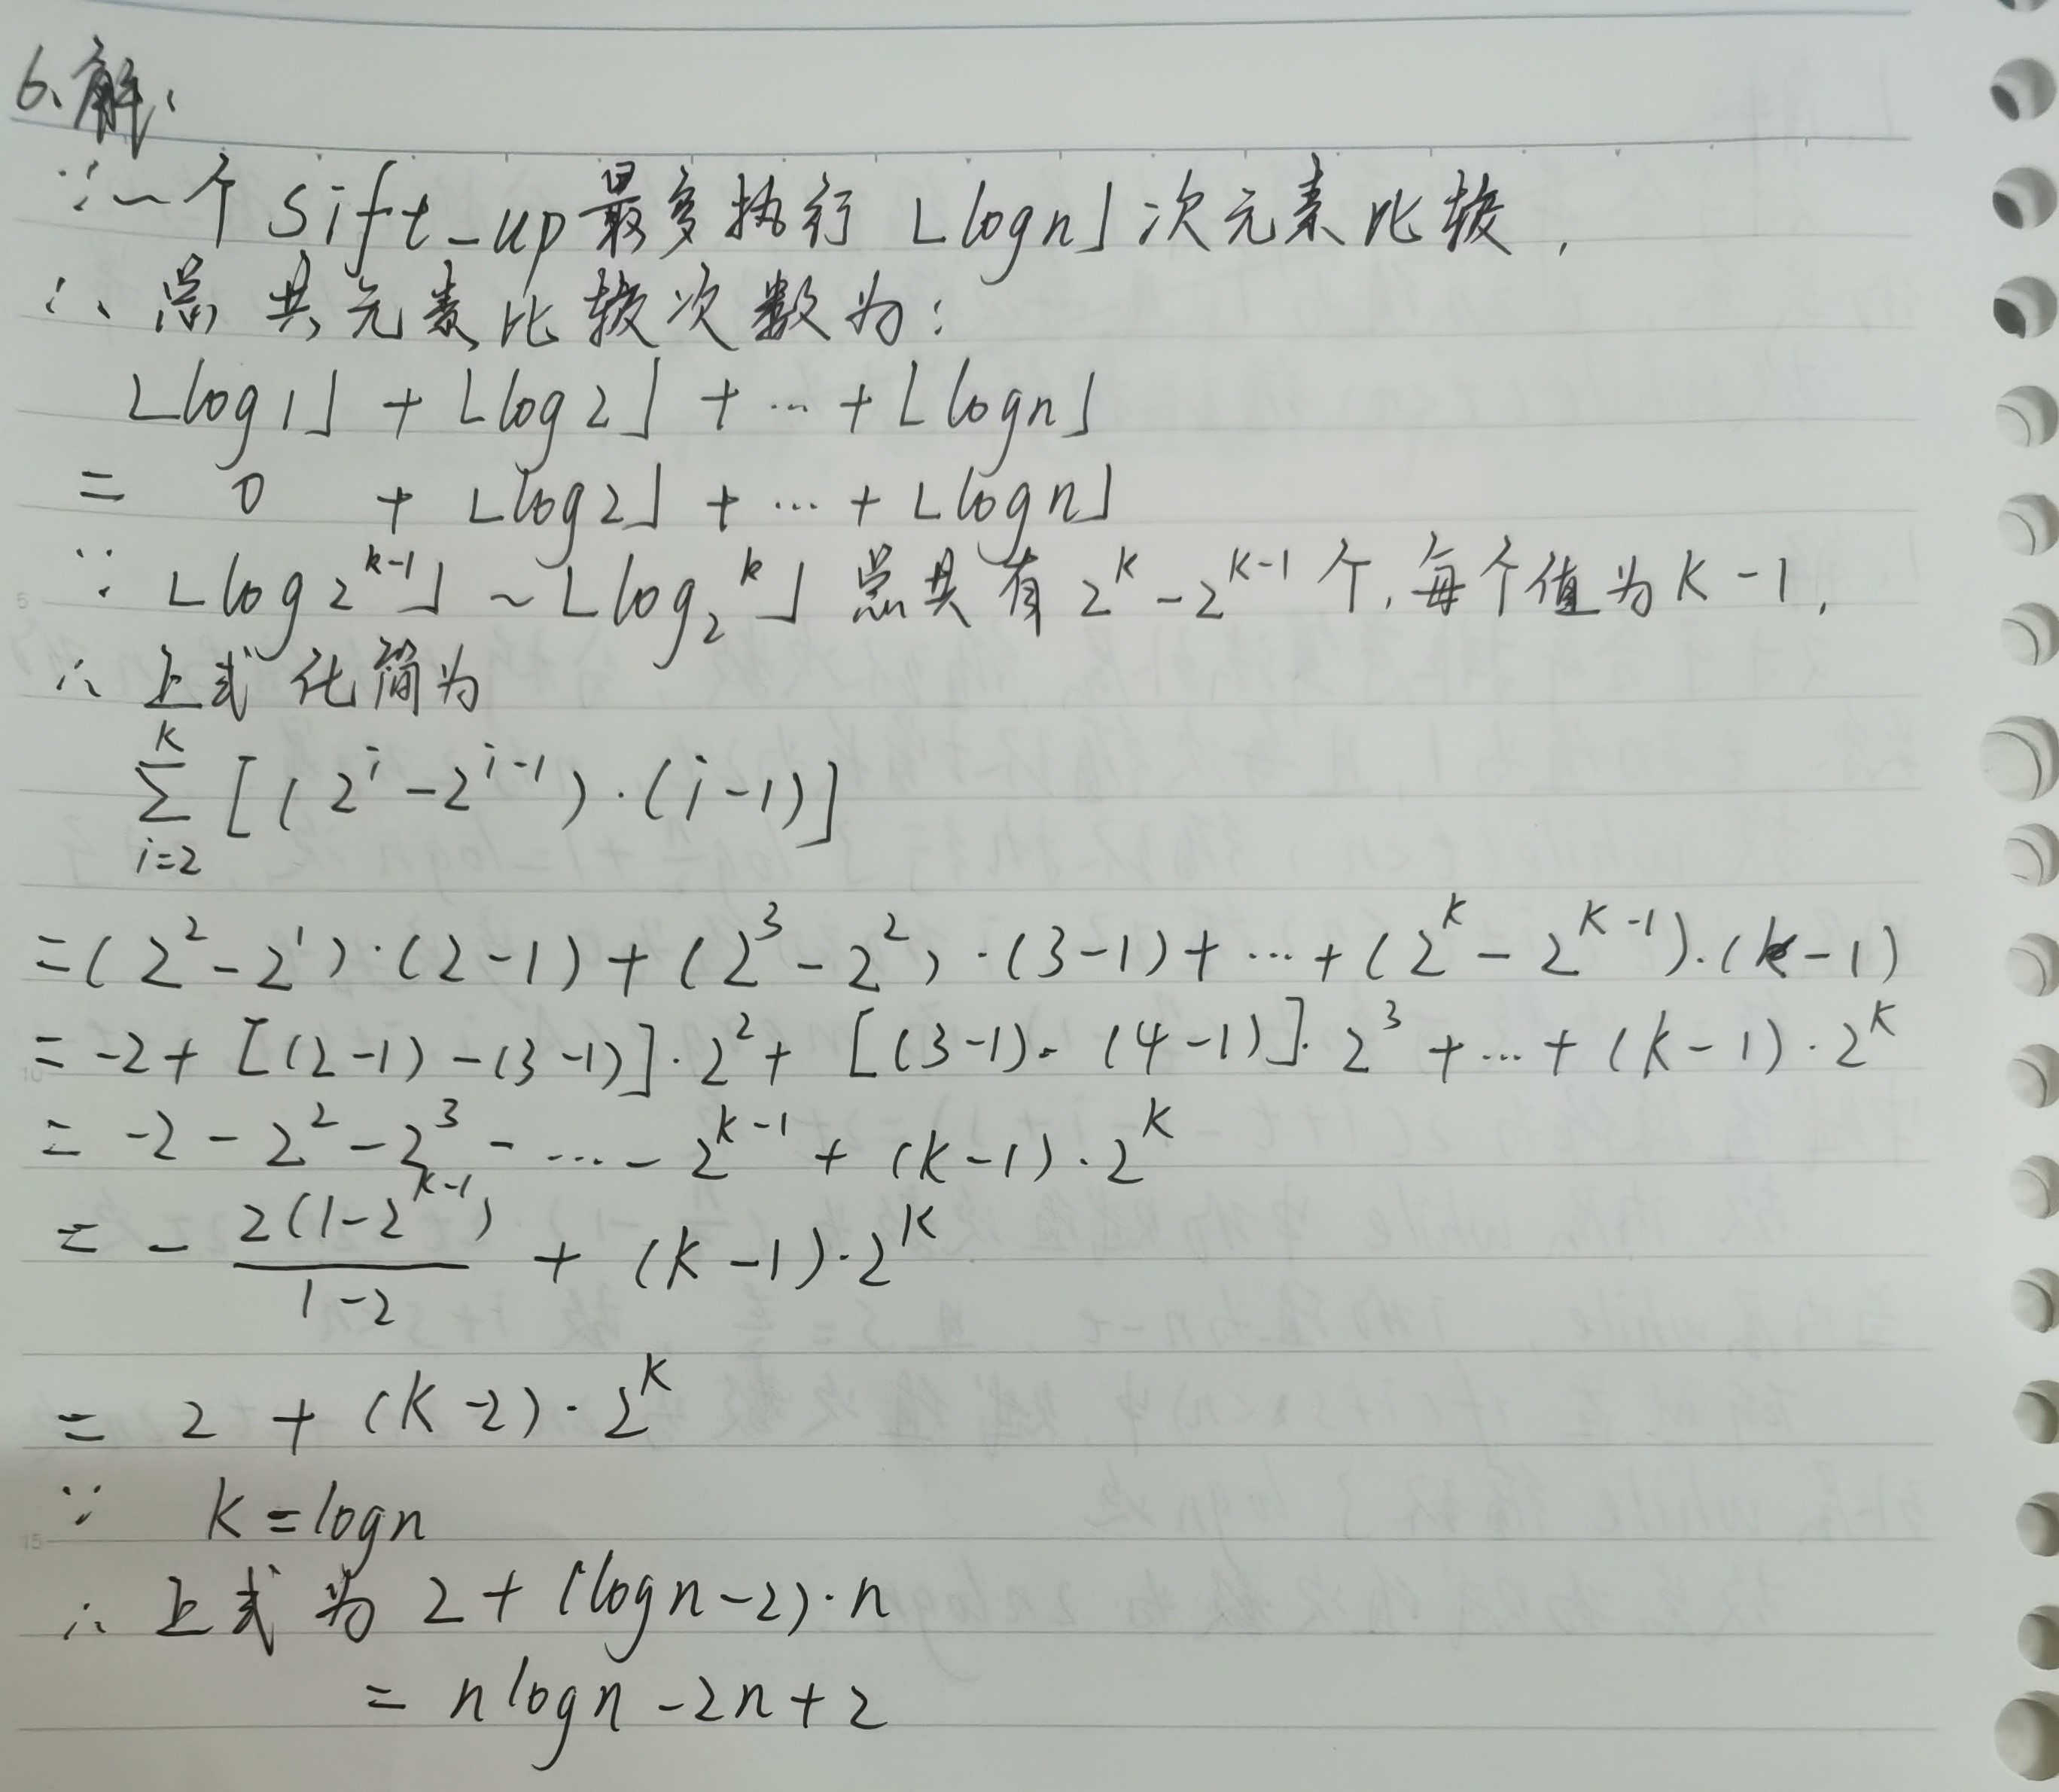 6、解:
∵一个 Sift_up 最多执行 ⌊logn⌋ 次元素比较,
∴ 总共元素比较次数为:
⌊log1⌋ + ⌊log2⌋ + … + ⌊logn⌋
= 0 + ⌊log2⌋ + … + ⌊logn⌋
∵ ⌊log2^{k-1}⌋ ~ ⌊log2^k⌋ 总共有 2^k - 2^{k-1} 个,每个值为 k-1,
∴ 上式化简为
∑_{i=2}^{k} [(2^i - 2^{i-1})·(i-1)]
= (2^2 - 2^1)·(2-1) + (2^3 - 2^2)·(3-1) + … + (2^k - 2^{k-1})·(k-1)
= -2 + [(2-1) - (3-1)]·2^2 + [(3-1) - (4-1)]·2^3 + … + (k-1)·2^k
= -2 - 2^2 - 2^3 - … - 2^{k-1} + (k-1)·2^k
= - \frac{2(1-2^{k-1})}{1-2} + (k-1)·2^k
= 2 + (k-2)·2^k
∵ k = logn
∴ 上式为 2 + (logn-2)·n
= nlogn - 2n + 2